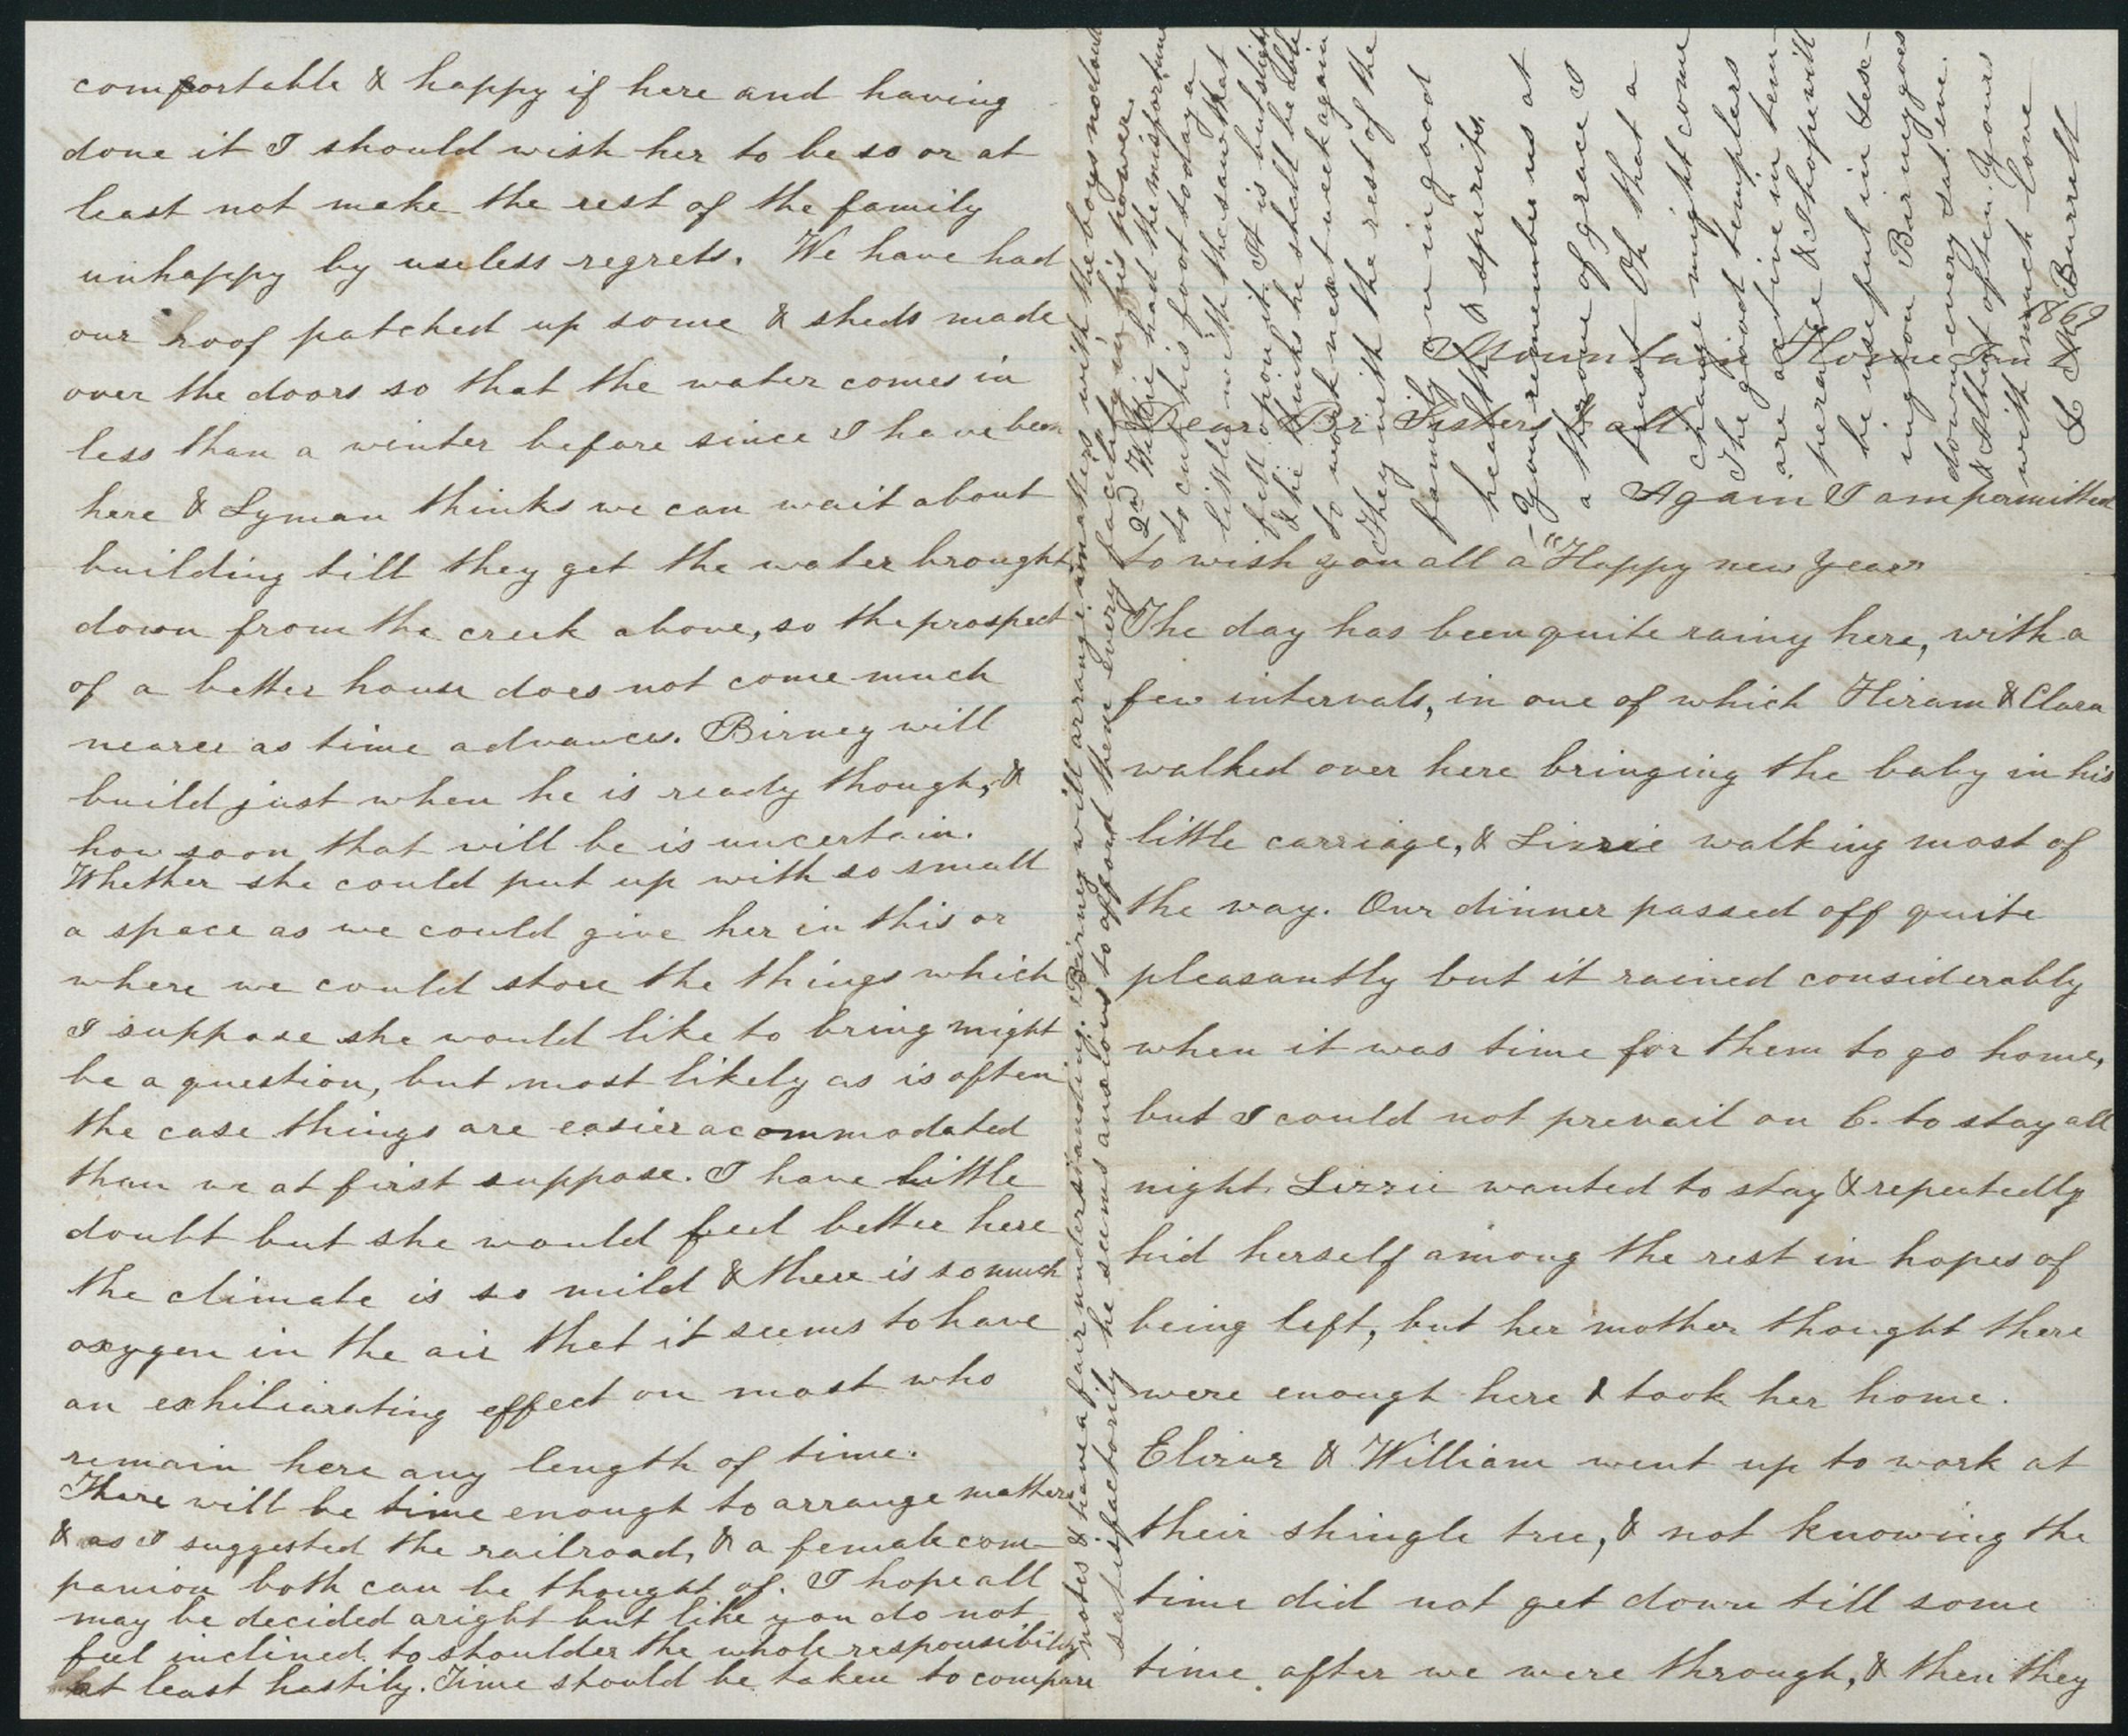 comfortable & happy if here and having
done it I should wish her to be so or at
least not make the rest of the family
unhappy by useless regrets. We have had
our roof patched up some & sheds made
over the doors so that the water comes in
less than a winter before since I have been
here & Lyman thinks we can wait about
building till they get the water brought
down from the creek above, so the prospect
of a better house does not come much
nearer as time advances. Birney will
build just when he is ready though, &
how soon that will be is uncertain.
Whether she could put up with so small
a space as we could give her in this or
where we could store the things which
I suppose she would like to bring might
be a question, but most likely as is often
the case things are easier acommodated
than we at first suppose. I have little
doubt but she would feel better here
the climate is so mild & there is so much
oxygen in the air that it seems to have
an exhiliarating effect on most who
remain here any length of time.
There will be time enough to arrange matters
& as I suggested the railroad, & a female com-
panion both can be thought of. I hope all
may be decided aright but like you do not
feel inclined to shoulder the whole responsibility
at least hastily. Time should be taken to compare
notes & have a fair understanding. Birney will arrange matters with the boys no doubt
satisfactorily he seems anxious to afford them every facility in his power.
Mountain Home Jan 1st 1869
Dear Br Sisters & all
Again I am permitted
to wish you all a "Happy new year"
The day has been quite rainy here, with a
few intervals, in one of which Hiram & Clara
walked over here bringing the baby in his
little carriage, & Lizzie walking most of
the way. Our dinner passed off quite
pleasantly but it rained considerably
when it was time for them to go home,
but I could not prevail on C. to stay all
night. Lizzie wanted to stay & repeatedly
hid herself among the rest in hopes of
being left, but her mother thought there
were enough here & took her home.
Elizur & William went up to work at
their shingle tree, & not knowing the
time did not get down till some
time after we were through, & then they
2nd Willie had the misfortune
to cut his foot today a
little with the saw that
fell upon it. It is but slight
& he thinks he shall be able
to work next week again
They with the rest of the
family on in good
health & spirits.
You remember us at
a throne of grace I
trust Oh that a
change might come
The good templars
are active in tem-
perance & I hope will
be useful in Lex-
ington Birney goes
down every sat. eve.
& Albert often. Yours
with much love
L A Burrell